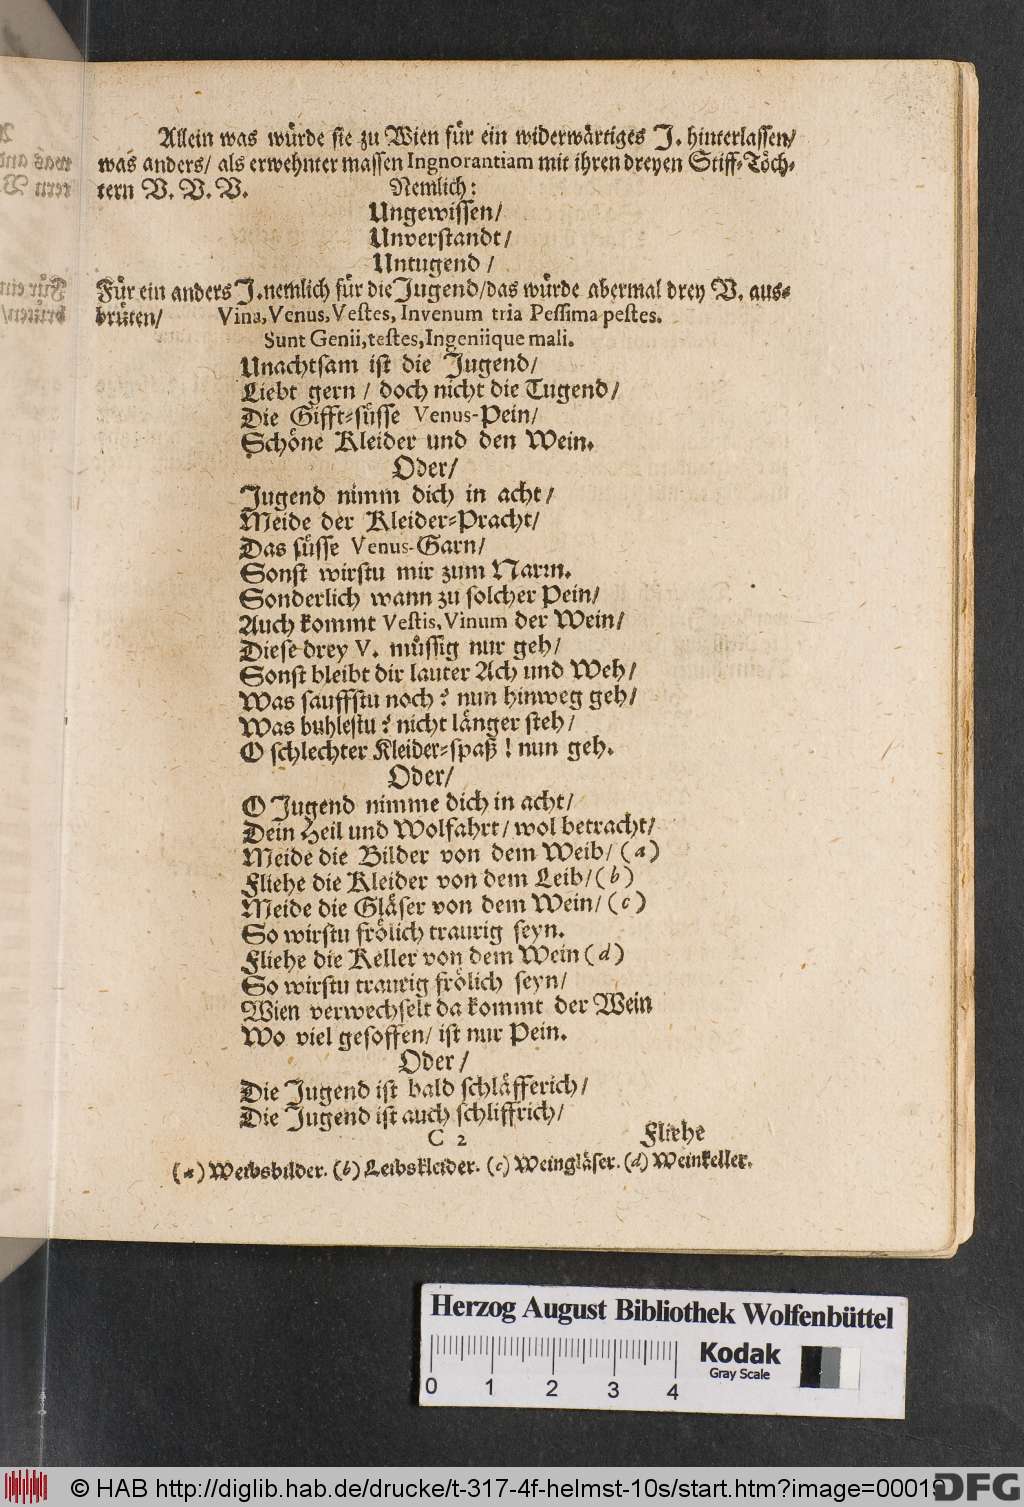 Allein was würde sie zu Wien für ein widerwärtiges J. hinterlassen/
was anders/ als erwehnter massen Ingnorantiam mit ihren dreyen Stiff-Töch-
tern V. V. V. Nemlich:
Ungewissen/
Unverstandt/
Untugend /
Für ein anders J. nemlich für die Jugend/das würde abermal drey V. aus-
brüten/ Vina, Venus, Vestes, Invenum tria Pessima pestes.
Sunt Genii, testes, Ingeniique mali.
Unachtsam ist die Jugend/
Liebt gern / doch nicht die Tugend/
Die Gifft-süsse Venus-Pein/
Schöne Kleider und den Wein.
Oder/
Jugend nimm dich in acht/
Meide der Kleider-Pracht/
Das süsse Venus-Garn/
Sonst wirstu mir zum Narrn.
Sonderlich wann zu solcher Pein/
Auch kommt Vestis, Vinum der Wein/
Diese drey V. müssig nur geh/
Sonst bleibt dir lauter Ach und Weh/
Was sauffstu noch? nun hinweg geh/
Was buhlestu? nicht länger steh/
O schlechter Kleider-spaß! nun geh.
Oder/
O Jugend nimme dich in acht/
Dein Heil und Wolfahrt/ wol betracht/
Meide die Bilder von dem Weib/ (a)
Fliehe die Kleider von dem Leib/ (b)
Meide die Gläser von dem Wein/ (c)
So wirstu frölich traurig seyn.
Fliehe die Keller von dem Wein (d)
So wirstu traurig frölich seyn/
Wien verwechselt da kommt der Wein
Wo viel gesoffen/ ist nur Pein.
Oder/
Die Jugend ist bald schläfferich/
Die Jugend ist auch schliffrich/
C 2 Fliehe
(a) Weibsbilder. (b) Leibskleider. (c) Weingläser. (d) Weinkeller.
Herzog August Bibliothek Wolfenbüttel
0 1 2 3 4
Kodak
Gray Scale
© HAB http://diglib.hab.de/drucke/t-317-4f-helmst-10s/start.htm?image=00019
DFG